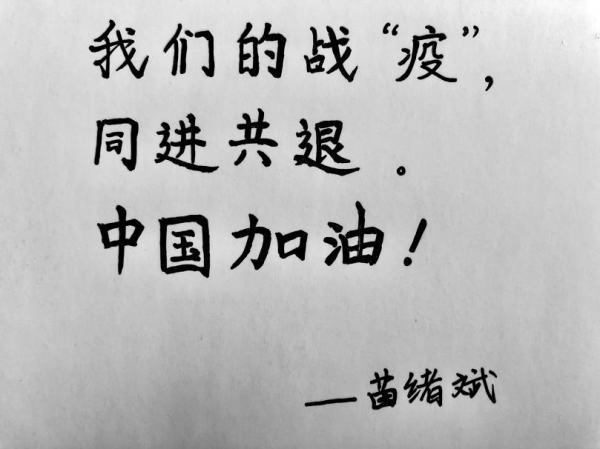 我们的战“疫”，
同进共退。
中国加油！
——苗绪斌